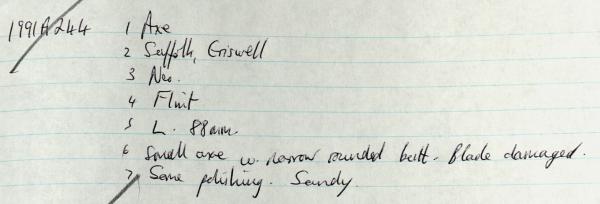 1991A244 1 Axe
2 Suffolk, Eriswell
3 Neo.
4 Flint
5 L. 88mm.
6 Small axe w. narrow rounded butt. Blade damaged.
7 Some polishing. Sandy.